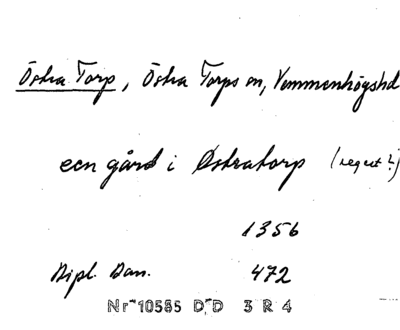 Östra Torp, Östra Torps sn, Vemmenhögshd
een gård i Østratorp (regest?)
1356
Dipl. Dan. 472
Nr 10585 D D 3 R 4